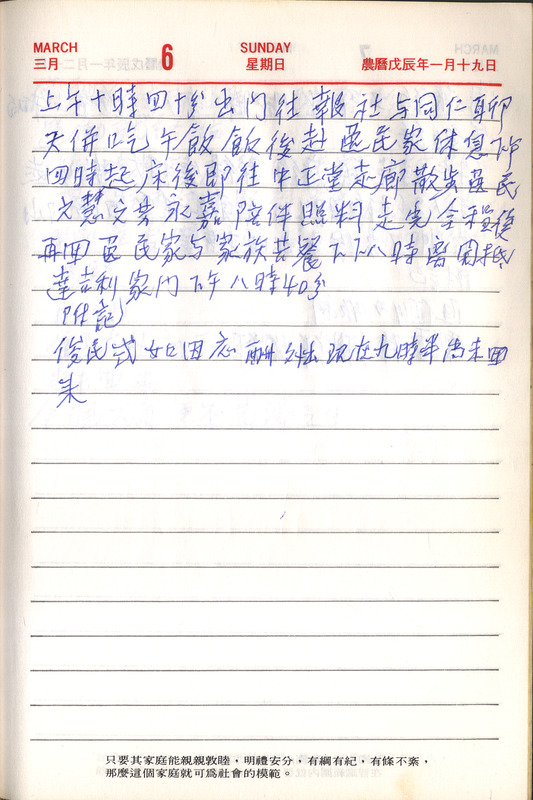 MARCH 6 SUNDAY
三月 星期日 農曆戊辰年一月十九日
上午十時四十分出門往報社与同仁聊
天併吃午飯飯後赴匡民家休息下午
四時起床後即往中正堂走廊散步匡民
文慧文芸永嘉陪伴照料走完全程後
再回匡民家与家族共餐下下八時離開抵
達吉利家門下午八時40分
附記
俊民式如因應酬 現在九時半尚未回
来
只要其家庭能親親敦睦,明禮安分,有綱有紀,有條不紊,
那麼這個家庭就可爲社會的模範。